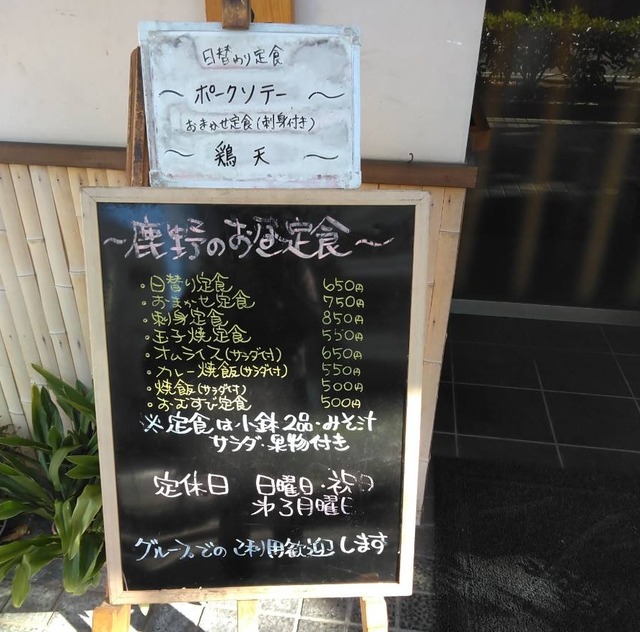 日替わり定食
〜 ポークソテー 〜
おまかせ定食(刺身付き)
〜 鶏天 〜
〜鹿野のお昼定食〜
・日替り定食 650円
・おまかせ定食 750円
・刺身定食 850円
・玉子焼定食 550円
・オムライス(サラダ付) 650円
・カレー焼飯(サラダ付) 550円
・焼飯(サラダ付) 500円
・おむすび定食 500円
※定食は小鉢2品・みそ汁
サラダ・果物付き
定休日 日曜日・祝日
第3月曜日
グループでのご利用歓迎します